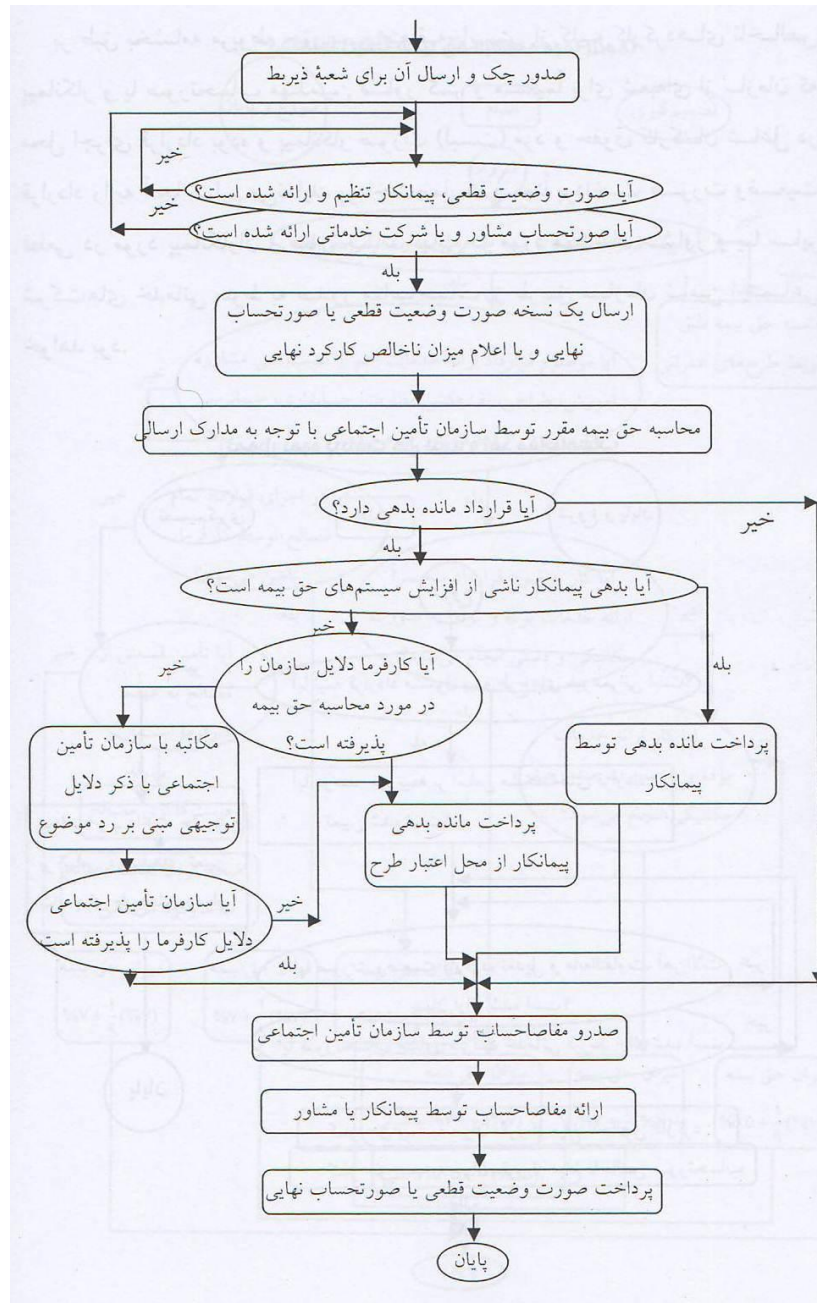 صدور چک و ارسال آن برای شعبهٔ ذیربط
خیر
آیا صورت وضعیت قطعی، پیمانکار تنظیم و ارائه شده است؟
خیر
آیا صورتحساب مشاور و یا شرکت خدماتی ارائه شده است؟
بله
ارسال یک نسخه صورت وضعیت قطعی یا صورتحساب
نهایی و یا اعلام میزان ناخالص کارکرد نهایی
محاسبه حق بیمه مقرر توسط سازمان تأمین اجتماعی با توجه به مدارک ارسالی
آیا قرارداد مانده بدهی دارد؟
خیر
بله
آیا بدهی پیمانکار ناشی از افزایش سیستم‌های حق بیمه است؟
خیر
بله
آیا کارفرما دلایل سازمان را
در مورد محاسبه حق بیمه
پذیرفته است؟
خیر
پرداخت مانده بدهی توسط
پیمانکار
مکاتبه با سازمان تأمین
اجتماعی با ذکر دلایل
توجیهی مبنی بر رد موضوع
پرداخت مانده بدهی
پیمانکار از محل اعتبار طرح
آیا سازمان تأمین اجتماعی
دلایل کارفرما را پذیرفته است
خیر
بله
صدرو مفاصاحساب توسط سازمان تأمین اجتماعی
ارائه مفاصاحساب توسط پیمانکار یا مشاور
پرداخت صورت وضعیت قطعی یا صورتحساب نهایی
پایان